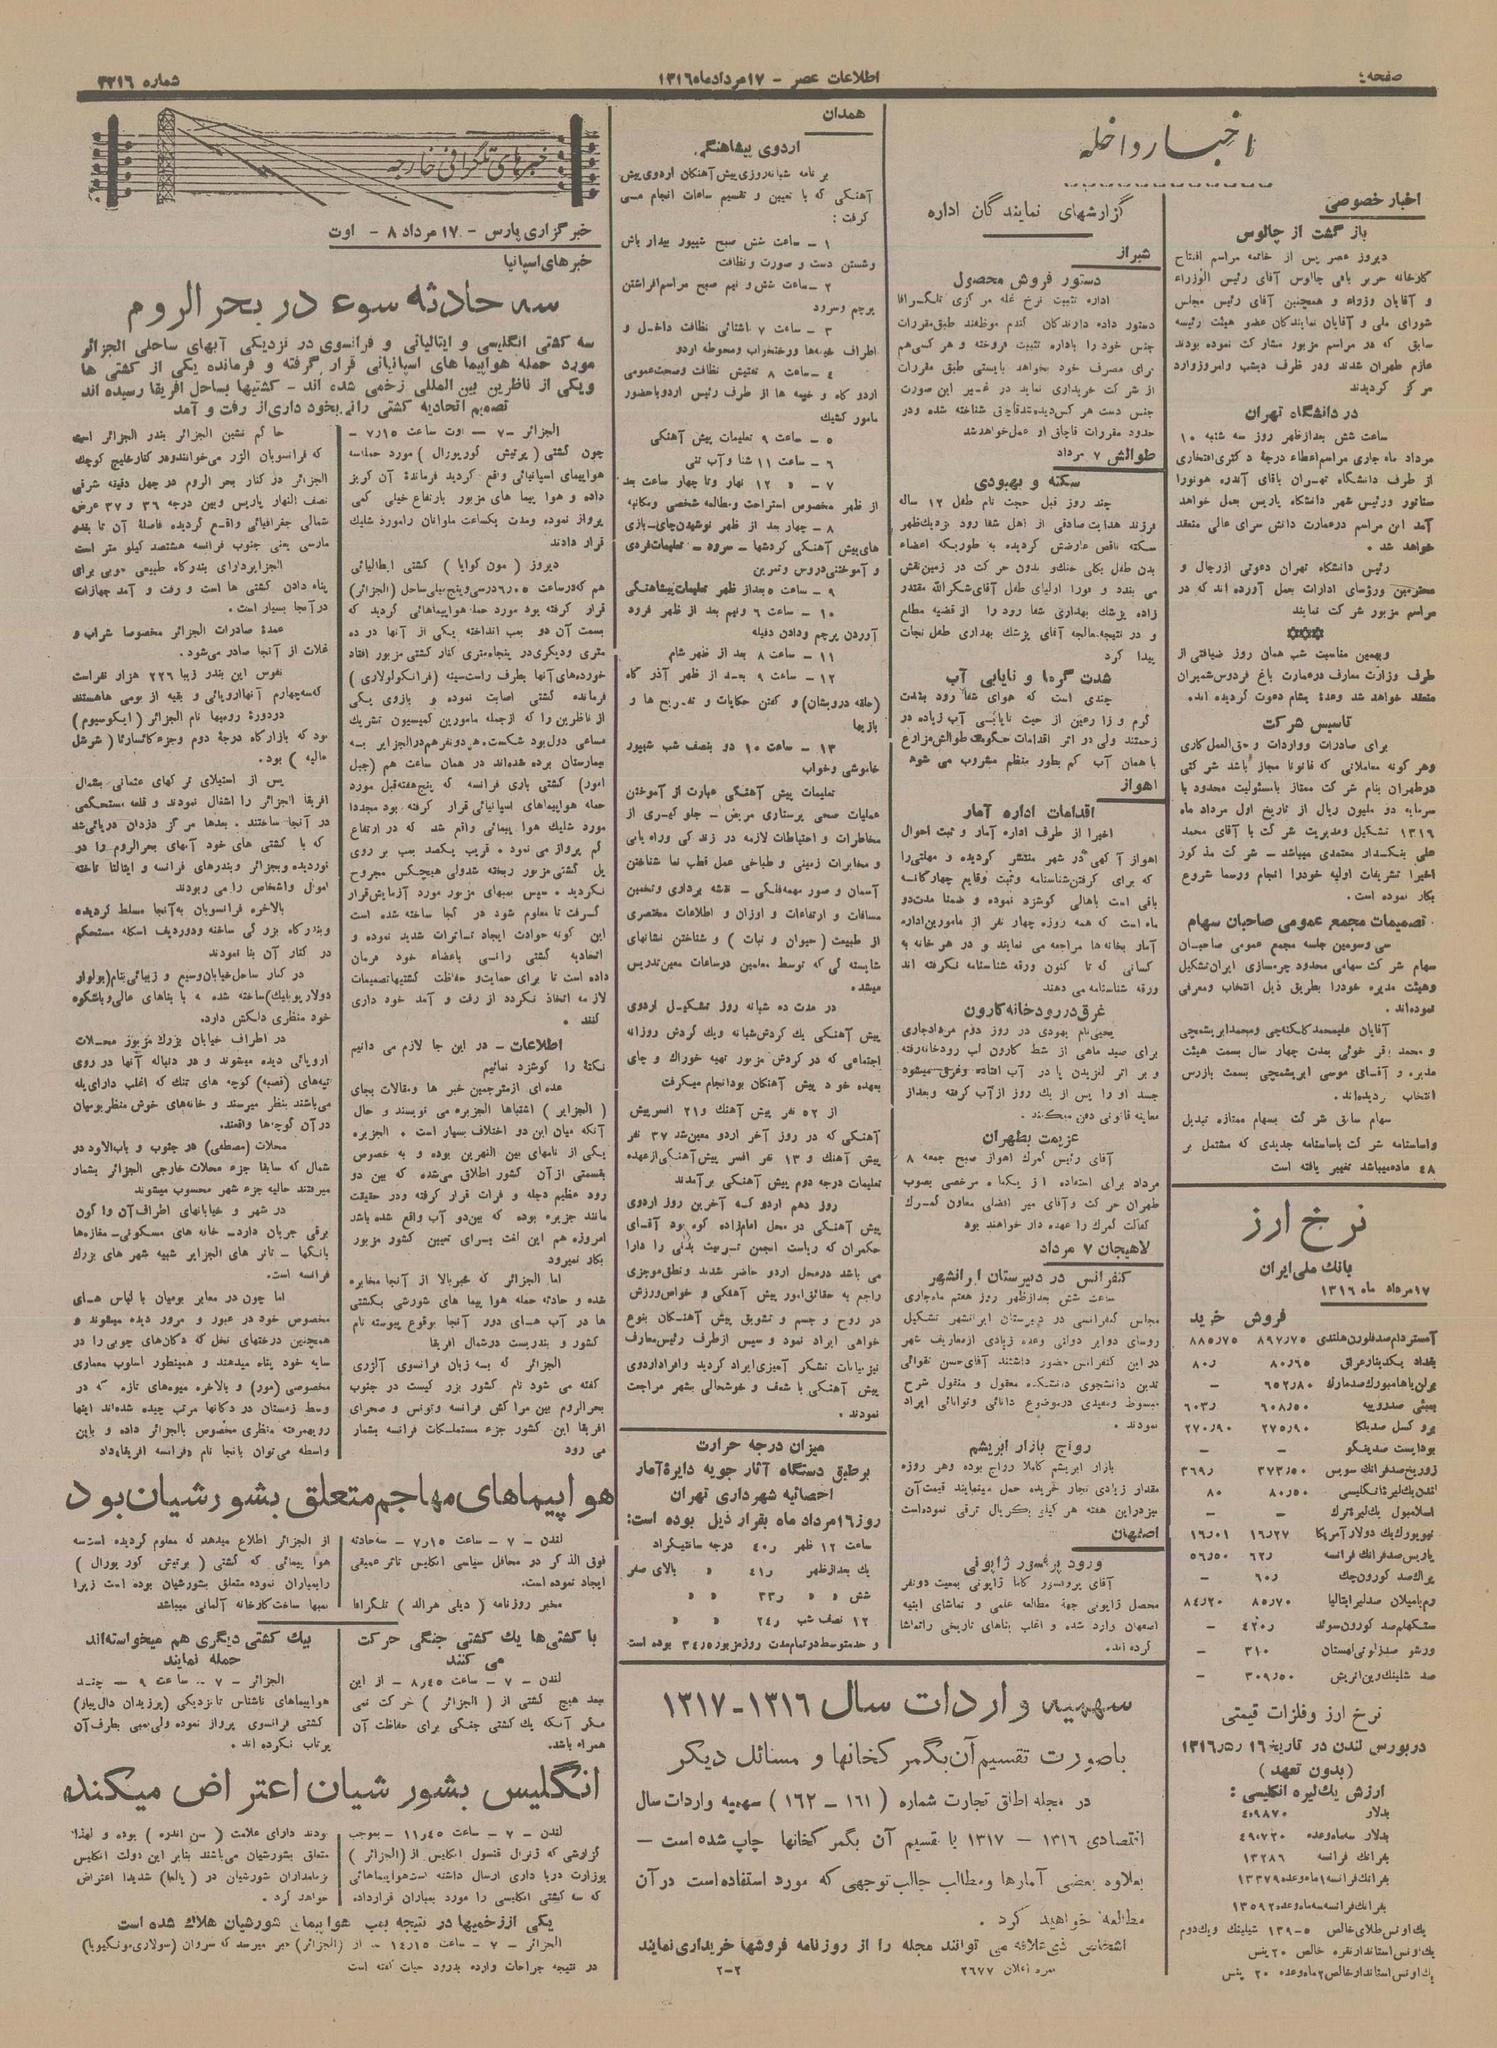 صفحه ٤
اطلاعات عصر - ۱۷ مردادماه ۱۳۱۶
شماره ۳۲۱۶
اخبار داخله
اخبار خصوصی
باز گشت از چالوس
دیروز عصر پس از خاتمه مراسم افتتاح
کارخانه حریر بافی چالوس آقای رئیس الوزراء
و آقایان وزراء و همچنین آقای رئیس مجلس
شورای ملی و آقایان نمایندگان عضو هیئت رئیسه
سابق که در مراسم مزبور مشارکت نموده بودند
عازم طهران شدند ودر ظرف دیشب وامروزوارد
مرکز گردیدند
در دانشگاه تهران
ساعت شش بعدازظهر روز سه شنبه ۱۰
مرداد ماه جاری مراسم اعطاء درجهٔ دکتری افتخاری
از طرف دانشگاه تهران بآقای آندره هونورا
سناتور ورئیس شهر دانشگاه پاریس بعمل خواهد
آمد این مراسم درعمارت دانش سرای عالی منعقد
خواهد شد .
رئیس دانشگاه تهران دعوتی ازرجال و
محترمین ورؤسای ادارات بعمل آورده اند که در
مراسم مزبور شرکت نمایند
وبهمین مناسبت شب همان روز ضیافتی از
طرف وزارت معارف درعمارت باغ فردوس شمیران
منعقد خواهد شد وعدهٔ بشام دعوت گردیده اند.
تأسیس شرکت
برای صادرات وواردات و حق العمل کاری
وهر گونه معاملاتی که قانونا مجاز باشد شرکتی
درطهران بنام شرکت ممتاز بامسئولیت محدود با
سرمایه دو ملیون ریال از تاریخ اول مرداد ماه
۱۳۱۶ تشکیل ومدیریت شرکت با آقای محمد
علی بنکدار معتمدی میباشد - شرکت مذکور
اخیرا تشریفات اولیه خودرا انجام ورسما شروع
بکار نموده است .
تصمیمات مجمع عمومی صاحبان سهام
سی وسومین جلسه مجمع عمومی صاحبان
سهام شرکت سهامی محدود چرمسازی ایران تشکیل
وهیئت مدیره خودرا بطریق ذیل انتخاب ومعرفی
نموده اند .
آقایان علیمحمد کاشکنه چی ومحمد ابریشمچی
و محمد باقر خوئی بمدت چهار سال بسمت هیئت
مدیره و آقای موسی ابریشمچی بسمت بازرس
انتخاب گردیده اند.
سهام سابق شرکت بسهام ممتازه تبدیل
واساسنامه شرکت باساسنامه جدیدی که مشتمل بر
٤٨ ماده میباشد تغییر یافته است
نرخ ارز
بانک ملی ایران
۱۷ مرداد ماه ۱۳۱۶
فروش خرید
آمستردام صد فلورن هلندی ۸۹۷٫۷۵ ۸۸۵٫۷۵
بغداد یکدینار عراق ۸۰٫۶۵ ۸۰٫
برلن یا هامبورک صد مارک ۶۵۲٫۸۰ -
بمبئی صد روپیه ۶۰۸٫۵۰ ۶۰۳٫
بروکسل صد بلکا ۲۷۵٫۹۰ ۲۷۰٫۹۰
بوداپست صد پنگو - -
زوریخ صد فرانک سویس ۳۷۳٫۵۰ ۳۶۹٫
لندن یک لیره انگلیسی ۸۰٫۵۰ ۸۰
اسلامبول یک لیره ترک - -
نیویورک یک دولار آمریکا ۱۶٫۲۷ ۱۶٫۰۱
پاریس صد فرانک فرانسه ۶۲٫ ۵۶٫۵۰
پراک صد کورون چک ۶۰٫ -
رم یا میلان صد لیر ایتالیا ۸۵٫۷۰ ۸۴٫۲۰
ستکهلم صد کورون سوئد ۴۲۰٫ -
ورشو صد زلوتی لهستان ۳۱۰ -
صد شلینک وین اتریش ۳۰۹٫۵۰ -
نرخ ارز و فلزات قیمتی
در بورس لندن در تاریخ ۱۶ ر ۵ ر ۱۳۱۶
(بدون تعهد)
ارزش یک لیره انگلیسی :
بدلار ۴٫۹۸۷۰
بدلار سه ماه وعده ۴٫۹۰۷۲۰
بفرانک فرانسه ۱۳۲٫۸۶
بفرانک فرانسه ۱ ماه وعده ۱۳۳٫۷۹
بفرانک فرانسه سه ماه وعده ۱۳۵٫۹۲
یک اونس طلای خالص ۱۳۹٫۰۵ شیلینک ویک دوم
یک اونس استاندار نقره خالص ۲۰ پنس
یک اونس استاندار خالص ۲ ماه وعده ۲۰ پنس
گزارشهای نمایندگان اداره
شیراز
دستور فروش محصول
اداره تثبیت نرخ غله مرکزی تلگرافا
دستور داده دارندگان گندم موظفند طبق مقررات
جنس خود را باداره تثبیت فروخته و هر کسی هم
برای مصرف خود بخواهد بایستی طبق مقررات
از شرکت خریداری نماید در غیر این صورت
جنس دست هر کس دیده شد قاچاق شناخته شده ودر
حدود مقررات قاچاق او عمل خواهد شد
طوالش ۷ مرداد
سکته و بهبودی
چند روز قبل حجت نام طفل ۱۲ ساله
فرزند هدایت صادقی از اهل شفا رود نزدیک ظهر
سکته ناقص عارضش گردیده به طوریکه اعضاء
بدن طفل بکلی خنک و بدون حرکت در زمین نقش
می بندد و فورا اولیای طفل آقای شکر الله مقتدر
زاده پزشک بهداری شفا رود را از قضیه مطلع
و در نتیجه معالجه آقای پزشک بهداری طفل نجات
پیدا کرد
شدت گرما و نایابی آب
چندی است که هوای شفا رود بشدت
گرم و زارعین از حیث نایابی آب زیاده در
زحمتند ولی در اثر اقدامات حکومت طوالش مزارع
با همان آب کم بطور منظم مشروب می شود
اهواز
اقدامات اداره آمار
اخیرا از طرف اداره آمار و ثبت احوال
اهواز آگهی در شهر منتشر گردیده و مهلتی را
که برای گرفتن شناسنامه وثبت وقایع چهارگانه
باقی است باهالی گوشزد نموده و ضمنا مدت دو
ماه است که همه روزه چهار نفر از مامورین اداره
آمار بخانه ها مراجعه می نمایند و در هر خانه به
کسانی که تا کنون ورقه شناسنامه نگرفته اند
ورقه شناسنامه می دهند
غرق در رودخانه کارون
یحیی نام یهودی در روز دوم مردادجاری
برای صید ماهی از شط کارون لب رودخانه رفته
و بر اثر لغزیدن پا در آب افتاده وغرق میشود
جسد او را پس از یک روز از آب گرفته وبعداز
معاینه قانونی دفن میکنند .
عزیمت بطهران
آقای رئیس گمرک اهواز صبح جمعه ۸
مرداد برای استفاده از یکماه مرخصی بصوب
طهران حرکت وآقای میر افضلی معاون گمرک
کفالت گمرک را عهده دار خواهند بود
لاهیجان ۷ مرداد
کنفرانس در دبیرستان ایرانشهر
ساعت شش بعدازظهر روز هفتم ماه جاری
مجلس کنفرانسی در دبیرستان ایرانشهر تشکیل
روسای دوایر دولتی وعده زیادی ازمعاریف شهر
در این کنفرانس حضور داشتند آقای حسن تقوائی
تدین دانشجوی دانشکده معقول و منقول شرح
مبسوط ومفیدی درموضوع دانائی وتوانائی ایراد
نمودند .
رواج بازار ابریشم
بازار ابریشم کاملا رواج بوده وهر روزه
مقدار زیادی تجار خریده حمل مینمایند قیمت آن
نیز در این هفته هر کیلو یک ریال ترقی نموده است
اصفهان
ورود پرفسور ژاپونی
آقای پروفسور کاما ژاپونی بمعیت دونفر
محصل ژاپونی جهة مطالعه علمی و تماشای ابنیه
اصفهان وارد شده و اغلب بناهای تاریخی را تماشا
کرده اند.
همدان
اردوی پیشاهنگی
برنامه شبانه روزی پیش آهنکان اردوی پیش
آهنکی که با تعیین و تقسیم ساعات انجام می
گرفت :
۱ - ساعت شش صبح شیپور بیدار باش
وشستن دست و صورت و نظافت
۲ - ساعت شش و نیم صبح مراسم افراشتن
پرچم وسرود
۳ - ساعت ۷ ناشتائی نظافت داخل و
اطراف خیمه ها ورختخواب ومحوطه اردو
٤ - ساعت ۸ تفتیش نظافت وصحت عمومی
اردو گاه و خیمه ها از طرف رئیس اردو باحضور
مامور کشیک
۵ - ساعت ۹ تعلیمات پیش آهنکی
۶ - ساعت ۱۱ شنا وآب تنی
۷ - « ۱۲ نهار وتا چهار ساعت بعد
از ظهر مخصوص استراحت ومطالعه شخصی ومکاتبه
۸ - چهار بعد از ظهر نوشیدن چای - بازی
های پیش آهنکی گردشها - سرود - تعلیمات فردی
و آموختنی دروس وتمرین
۹ - ساعت ۵ بعد از ظهر تعلیمات پیشاهنکی
۱۰ - ساعت ۶ ونیم بعد از ظهر فرود
آوردن پرچم ودادن دفیله
۱۱ - ساعت ۸ بعد از ظهر شام
۱۲ - ساعت ۹ بعد از ظهر آذر گاه
(حلقه درویشان) و گفتن حکایات و تفریح ها و
بازیها
۱۳ - ساعت ۱۰ دو بنصف شب شیپور
خاموشی وخواب
تعلیمات پیش آهنکی عبارت از آموختن
عملیات صحی پرستاری مریض - جلوگیری از
مخاطرات و احتیاطات لازمه در زندگی وراه یابی
و مخابرات زمینی و طباخی عمل قطب نما شناختن
آسمان و صور مهمه فلکی - نقشه برداری وتخمین
مسافات و ارتفاعات و اوزان و اطلاعات مختصری
از طبیعت (حیوان و نبات) و شناختن نشانهای
شایستگی که توسط معلمین درساعات معین تدریس
میشد.
در مدت ده شبانه روز تشکیل اردوی
پیش آهنکی یک گردش شبانه ویک گردش روزانه
اجتماعی که در گردش مزبور تهیه خوراک و چای
بعهده خود پیش آهنکان بود انجام میگرفت
از ۵۲ نفر پیش آهنک و ۲۱ افسر پیش
آهنکی که در روز آخر اردو معین شد ۳۷ نفر
پیش آهنک و ۱۳ نفر افسر پیش آهنکی ازعهده
تعلیمات درجه دوم پیش آهنکی برآمدند
روز دهم اردو که آخرین روز اردوی
پیش آهنکی در محل امامزاده کوه بود آقای
حکمران که ریاست انجمن تربیت بدنی را دارا
می باشد درمحل اردو حاضر شدند ونطق موجزی
راجع به حقائق امور پیش آهنکی و خواص ورزش
در روح و جسم و تشویق پیش آهنکان بنوع
خواهی ایراد نمود و سپس ازطرف رئیس معارف
نیز بیانات تشکر آمیزی ایراد گردید وافراد اردوی
پیش آهنکی با شعف و خوشحالی بشهر مراجعت
نمودند .
میزان درجه حرارت
برطبق دستگاه آثار جویه دایرهٔ آمار
احصائیه شهرداری تهران
روز ۱۶ مرداد ماه بقرار ذیل بوده است :
ساعت ۱۲ ظهر ۴۰٫ درجه سانتیگراد
یک بعدازظهر ۴۱٫ « بالای صفر
شش « « ۳۳٫ « «
۱۲ نصف شب ۲۴٫ « «
و حد متوسط در تمام مدت روز مزبور ۳۴٫۵ بوده است
سهمیه واردات سال ۱۳۱۶ - ۱۳۱۷
باصورت تقسیم آن بگمرکخانها و مسائل دیگر
در مجله اطاق تجارت شماره (۱۶۱ - ۱۶۲) سهمیه واردات سال
اقتصادی ۱۳۱۶ - ۱۳۱۷ با تقسیم آن بگمرکخانها چاپ شده است -
بعلاوه بعضی آمارها ومطالب جالب توجهی که مورد استفاده است در آن
مطالعه خواهید کرد .
اشخاص ذی علاقه می توانند مجله را از روزنامه فروشها خریداری نمایند
نمره اعلان ۲۶۷۷ ۲-۲
خبرهای تلگرافی خارجه
خبرگزاری پارس - ۱۷ مرداد ۸ - اوت
خبرهای اسپانیا
سه حادثه سوء در بحر الروم
سه کشتی انگلیسی و ایتالیائی و فرانسوی در نزدیکی آبهای ساحلی الجزائر
مورد حمله هواپیما های اسپانیائی قرار گرفته و فرمانده یکی از کشتی ها
ویکی از ناظرین بین المللی زخمی شده اند - کشتیها بساحل افریقا رسیده اند
تصمیم اتحادیه کشتی رانی بخود داری از رفت و آمد
الجزائر - ۷ - اوت ساعت ۷٫۱۵ -
چون کشتی (بریتیش کوریورال) مورد حمله
هواپیمای اسپانیائی واقع گردید فرماندهٔ آن گریز
داده و هوا پیما های مزبور بارتفاع خیلی کمی
پرواز نموده ومدت یکساعت ملوانان رامورد شلیک
قرار دادند
دیروز (مون کوایا) کشتی ایطالیائی
هم که در ساعت ۶٫۰۵ در سی وپنج میلی ساحل (الجزائر)
قرار گرفته بود مورد حمله هواپیماهائی گردید که
بسمت آن دو بمب انداخته یکی از آنها در ده
متری ودیگری در پنجاه متری کنار کشتی مزبور افتاد
خورده های آنها بطرف راست سینه (فرانکولاری)
فرمانده کشتی اصابت نموده و بازوی یکی
از ناظرین را که ازجمله مامورین کمیسیون تشریک
مساعی دول بود شکست. هر دونفر هم در الجزایر به
بیمارستان برده شده اند در همان ساعت هم (جبل
امور) کشتی باری فرانسه که پنج هفته قبل مورد
حمله هواپیماهای اسپانیائی قرار گرفته بود مجددا
مورد شلیک هوا پیمائی واقع شد که در ارتفاع
کم پرواز می نمود . قریب یکصد بمب بر روی
پل کشتی مزبور ریخته شد ولی هیچکس مجروح
نگردید . سپس بمبهای مزبور مورد آزمایش قرار
گرفت تا معلوم شود در کجا ساخته شده است
این گونه حوادث ایجاد تاثرات شدید نموده و
اتحادیه کشتی رانسی باعضاء خود فرمان
داده است تا برای حمایت و حفاظت کشتیها تصمیمات
لازمه اتخاذ نگردد از رفت و آمد خود داری
کنند .
اطلاعات - در این جا لازم می دانیم
نکتهٔ را گوشزد نمائیم
عده ای از مترجمین خبر ها ومقالات بجای
(الجزایر) اشتباها الجزیره می نویسند و حال
آنکه میان این دو اختلاف بسیار است . الجزیره
یکی از نامهای بین النهرین بوده و به خصوص
بقسمتی از آن کشور اطلاق می شده که بین دو
رود عظیم دجله و فرات قرار گرفته ودر حقیقت
مانند جزیره بوده که بین دو آب واقع شده باشد
امروزه هم این لغت برای تعیین کشور مزبور
بکار نمیرود
اما الجزائر که خبر بالا از آنجا مخابره
شده و حادثه حمله هوا پیما های شورشی بکشتی
ها در آب های دور آنجا بوقوع پیوسته نام
کشور و بندریست در شمال افریقا
الجزائر که بسه زبان فرانسوی آلژری
گفته می شود نام کشور بزرگیست در جنوب
بحرالروم بین مراکش فرانسه وتونس و صحرای
افریقا این کشور جزء مستملکات فرانسه بشمار
می رود
حاکم نشین الجزائر بندر الجزائر است
که فرانسویان الژر می خوانند ودر کنار خلیج کوچک
الجزائر در کنار بحر الروم در چهل دقیقه شرقی
نصف النهار پاریس وبین درجه ۳۶ و ۳۷ عرض
شمالی جغرافیائی واقع گردیده فاصلهٔ آن تا بندر
مارسی یعنی جنوب فرانسه هشتصد کیلو متر است
الجزایر دارای بندرگاه طبیعی خوبی برای
پناه دادن کشتی ها است و رفت و آمد جهازات
در آنجا بسیار است .
عمدهٔ صادرات الجزائر مخصوصا شراب و
غلات از آنجا صادر می شود.
نفوس این بندر زیبا ۲۲۶ هزار نفر است
که سه چهارم آنها اروپائی و بقیه از بومی ها هستند
در دورهٔ رومیها نام الجزائر (ایکوسیوم)
بود که بازار گاه درجهٔ دوم وجزء کاسارنا (شرشل
حالیه) بود.
پس از استیلای ترکهای عثمانی بشمال
افریقا الجزائر را اشغال نمودند و قلعه مستحکمی
در آنجا ساختند . بعدها مرکز دزدان دریائی شد
که با کشتی های خود آبهای بحرالروم را در
نوردیده وبجزائر وبندرهای فرانسه و ایتالیا تاخته
اموال واشخاص را می ربودند
بالاخره فرانسویان به آنجا مسلط گردیده
وبندرگاه بزرگی ساخته ودوردیف اسکله مستحکم
در کنار آن بنا نمودند
در کنار ساحل خیابان وسیع و زیبائی بنام (بولوار
دولاریپوبلیک) ساخته شده که با بناهای عالی وباشکوه
خود منظری دلکش دارد.
در اطراف خیابان بزرگ مزبور محلات
اروپائی دیده میشوند و در دنباله آنها در روی
تپه های (قصبه) کوچه های تنگ که اغلب دارای پله
می باشند بنظر میرسند و خانه های خوش منظر بومیان
در آن کوچه ها واقعند.
محلات (مصطفی) در جنوب و باب الاود در
شمال که سابقا جزء محلات خارجی الجزائر بشمار
میرفتند حالیه جزء شهر محسوب میشوند
در شهر و خیابانهای اطراف آن واگون
برقی جریان دارد - خانه های مسکونی - مغازه ها
بانکها - تاتر های الجزایر شبیه شهر های بزرگ
فرانسه است.
اما چون در معابر بومیان با لباس های
مخصوص خود در عبور و مرور دیده میشوند و
همچنین درختهای نخل که دکان های چوبی را در
سایه خود پناه میدهند و همینطور اسلوب معماری
مخصوصی (مور) و بالاخره میوه های تازه که در
وسط زمستان در دکانها مرتب چیده شده اند اینها
رویهمرفته منظری مخصوص بالجزائر داده و باین
واسطه می توان بآنجا نام «فرانسه افریقا» داد
هواپیماهای مهاجم متعلق بشورشیان بود
لندن - ۷ - ساعت ۷٫۱۵ - سه حادثه
فوق الذکر در محافل سیاسی انگلیس تاثر عمیقی
ایجاد نموده است.
مخبر روزنامه (دیلی هرالد) تلگرافا
از الجزائر اطلاع میدهد که معلوم گردیده است سه
هوا پیمائی که کشتی (بریتیش کوریورال)
رابمباران نموده متعلق بشورشیان بوده است زیرا
بمبها ساخت کارخانه آلمانی میباشد
با کشتی ها یک کشتی جنگی حرکت
می کنند
لندن - ۷ - ساعت ۸٫۴۵ - از این
ببعد هیچ کشتی از (الجزائر) حرکت نمی
مگر آنکه یک کشتی جنگی برای حفاظت آن
همراه باشد.
بیک کشتی دیگری هم میخواسته اند
حمله نمایند
الجزائر - ۷ - ساعت ۹ - چند
هواپیماهای ناشناس تا نزدیکی (پرزیدان دال پیاز)
کشتی فرانسوی پرواز نموده ولی بمبی بطرف آن
پرتاب نکرده اند .
انگلیس بشورشیان اعتراض میکند
لندن - ۷ - ساعت ۱۱٫۴۵ - بموجب
گزارشی که ژنرال قنسول انگلیس از (الجزائر)
بوزارت دریا داری ارسال داشته است هواپیماهائی
که سه کشتی انگلیسی را مورد بمباران قرارداده
بودند دارای علامت (سن اندره) بوده و لهذا
متعلق بشورشیان می باشند بنابر این دولت انگلیس
بزمامداران شورشیان در (پالما) شدیدا اعتراض
خواهد کرد .
یکی از زخمیها در نتیجه بمب هواپیمای شورشیان هلاک شده است
الجزائر - ۷ - ساعت ۱۴٫۱۵ - از (الجزائر) خبر میرسد که سروان (سولاری مونگیویا)
در نتیجه جراحات وارده بدرود حیات گفته است